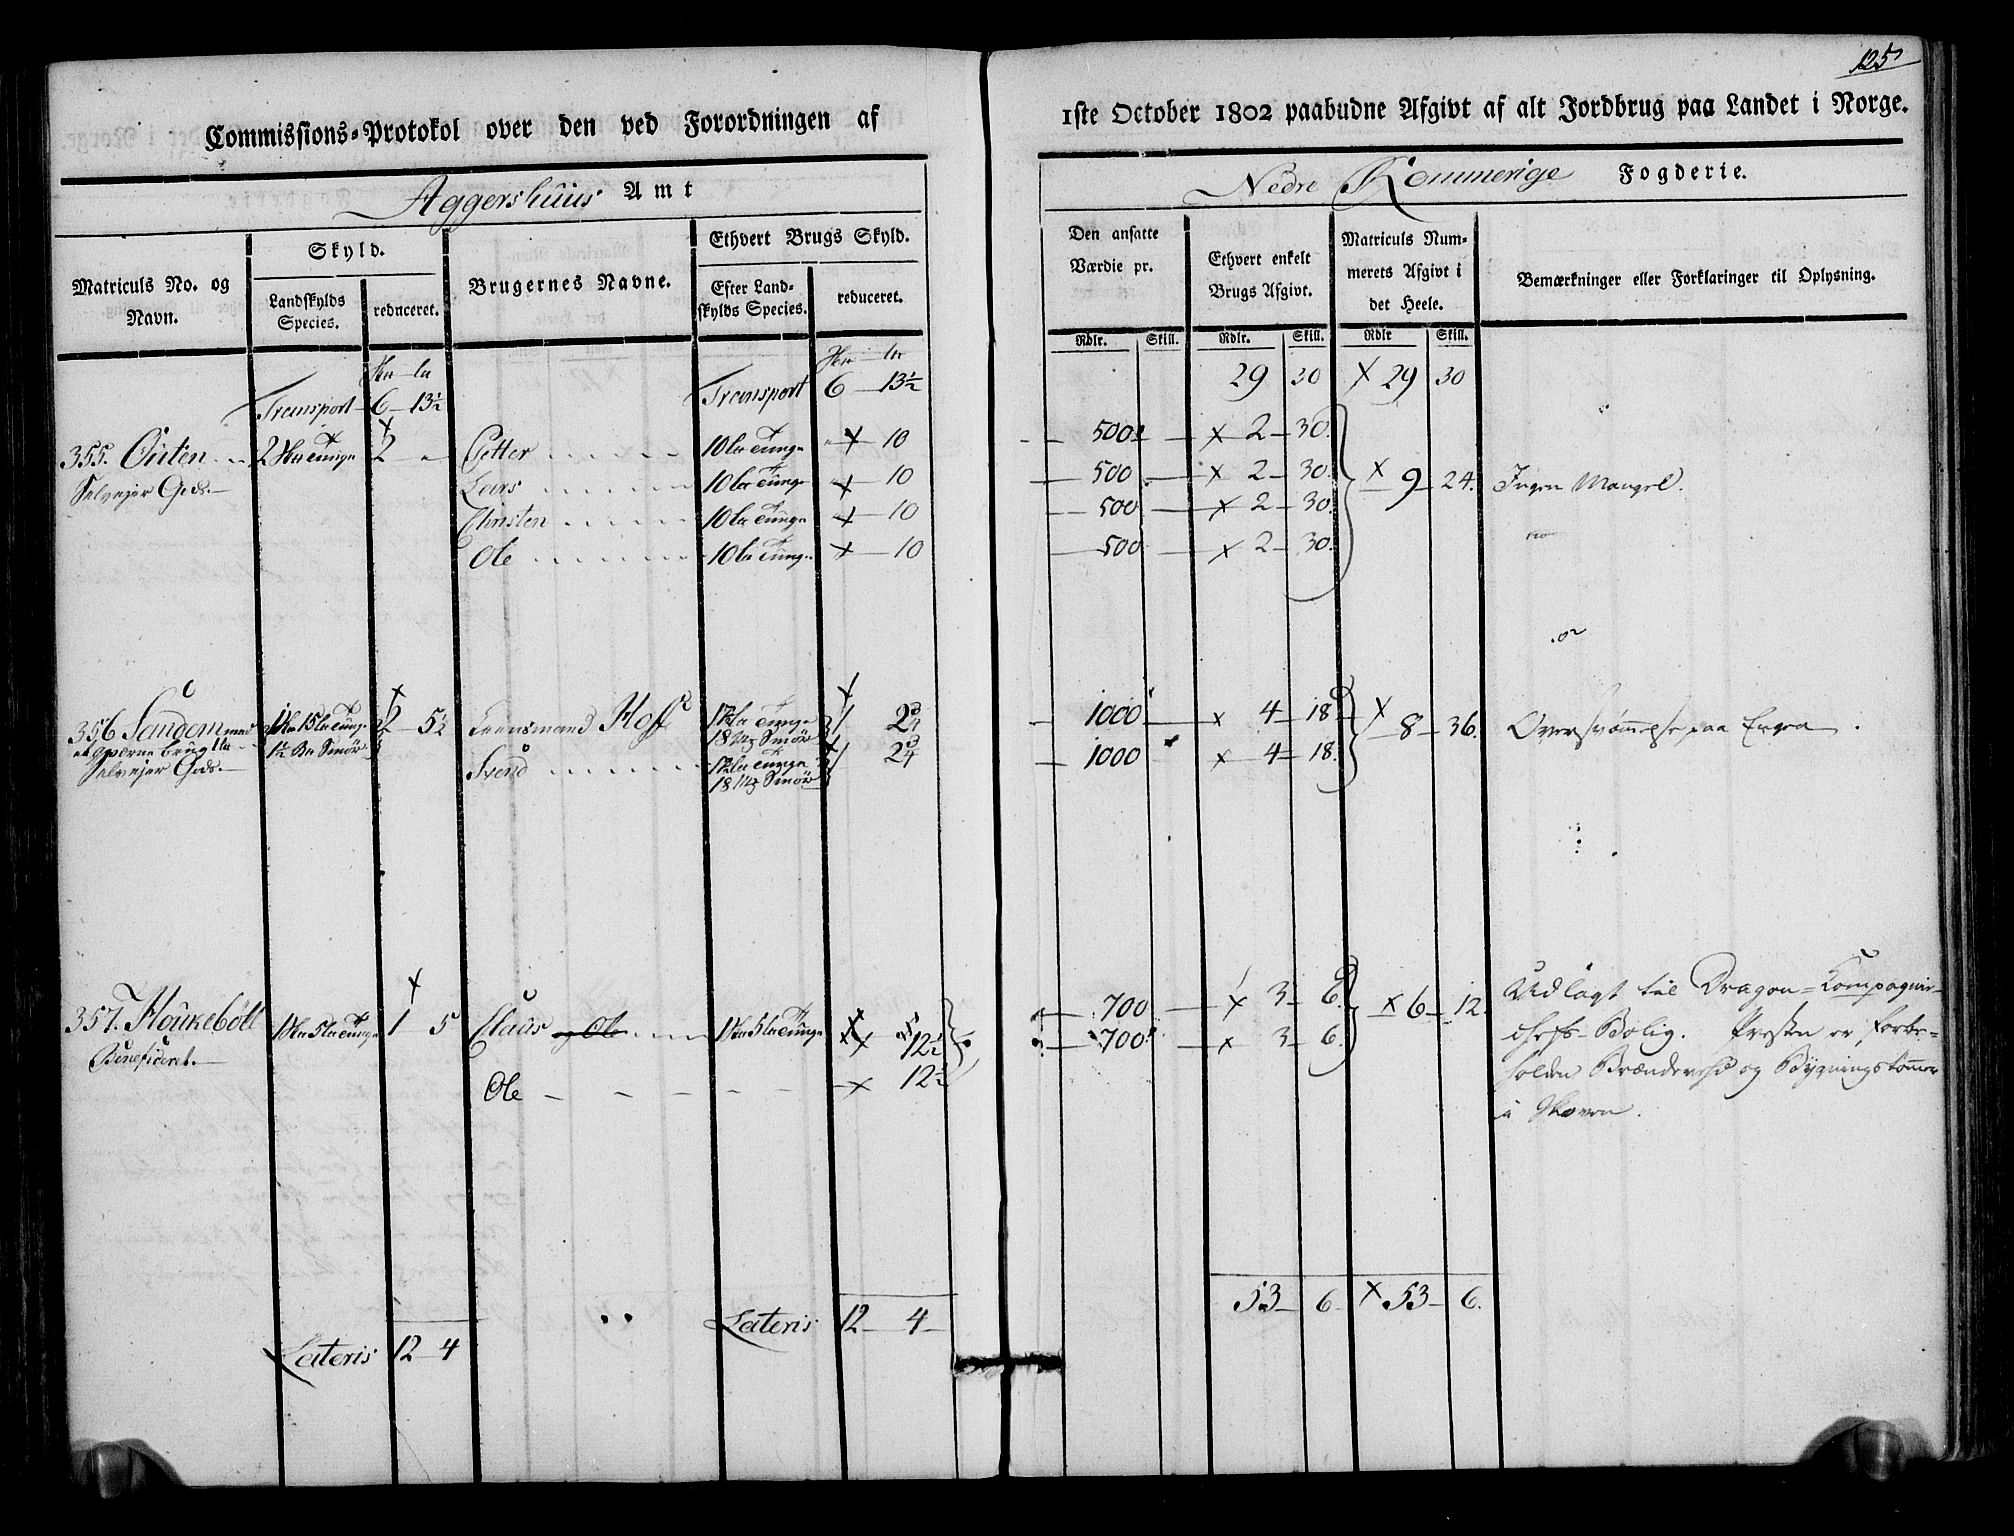 125
Commissions-Protokol over den ved Forordningen af
1ste October 1802 paabudne Afgivt af alt Jordbrug paa Landet i Norge.
Aggershuus Amt
Nedre Rommerige Fogderie.
Matriculs No. og Navn.
Skyld.
Landskylds Species.
reduceret.
Brugernes Navne.
Ethvert Brugs Skyld.
Efter Landskylds Species.
reduceret.
Den ansatte Værdie pr.
Ethvert enkelt Brugs Afgivt.
Matriculs Nummerets Afgivt i det Heele.
Bemærkninger eller Forklaringer til Oplysning.
Rdlr. Skill. Rdlr. Skill. Rdlr Skill.
Transport 6 – 13½ Transport 6 – 13½ 29 30 x 29 30
355. Outen 2 2 Petter 10 x 10 500 x 2 – 30.
Selvejer Gods. Lars 10 x 10 500 x 2 – 30. x 9 – 24. Ingen Mangel.
Christen 10 x 10 500 x 2 – 30.
Ole 10 x 10 500 x 2 – 30.
356 Sandom med 2 – 5½ Leensmand Hoff 1 2¾ 1000 x 4 – 18 x 8 – 36. Oversvømmelse paa Engen.
1½ Smör 18 Smör
Selvejer Gods. Svend 1 2¾ 1000 x 4 – 18.
18 Smör
357. Houkeböll 1 5 Claus og Ole 700 x 3 – 6. x 6 – 12. Udlagt til Dragon-Kompagnie-
Beneficeret. 12½ 700 x 3 – 6. chefs-Bolig. Presten er forbe-
Ole x 12½ holden Brændeved og Bygningstömmer
i Skoven.
53 – 6 x 53 – 6.
Lateris 12 – 4
Lateris 12 – 4